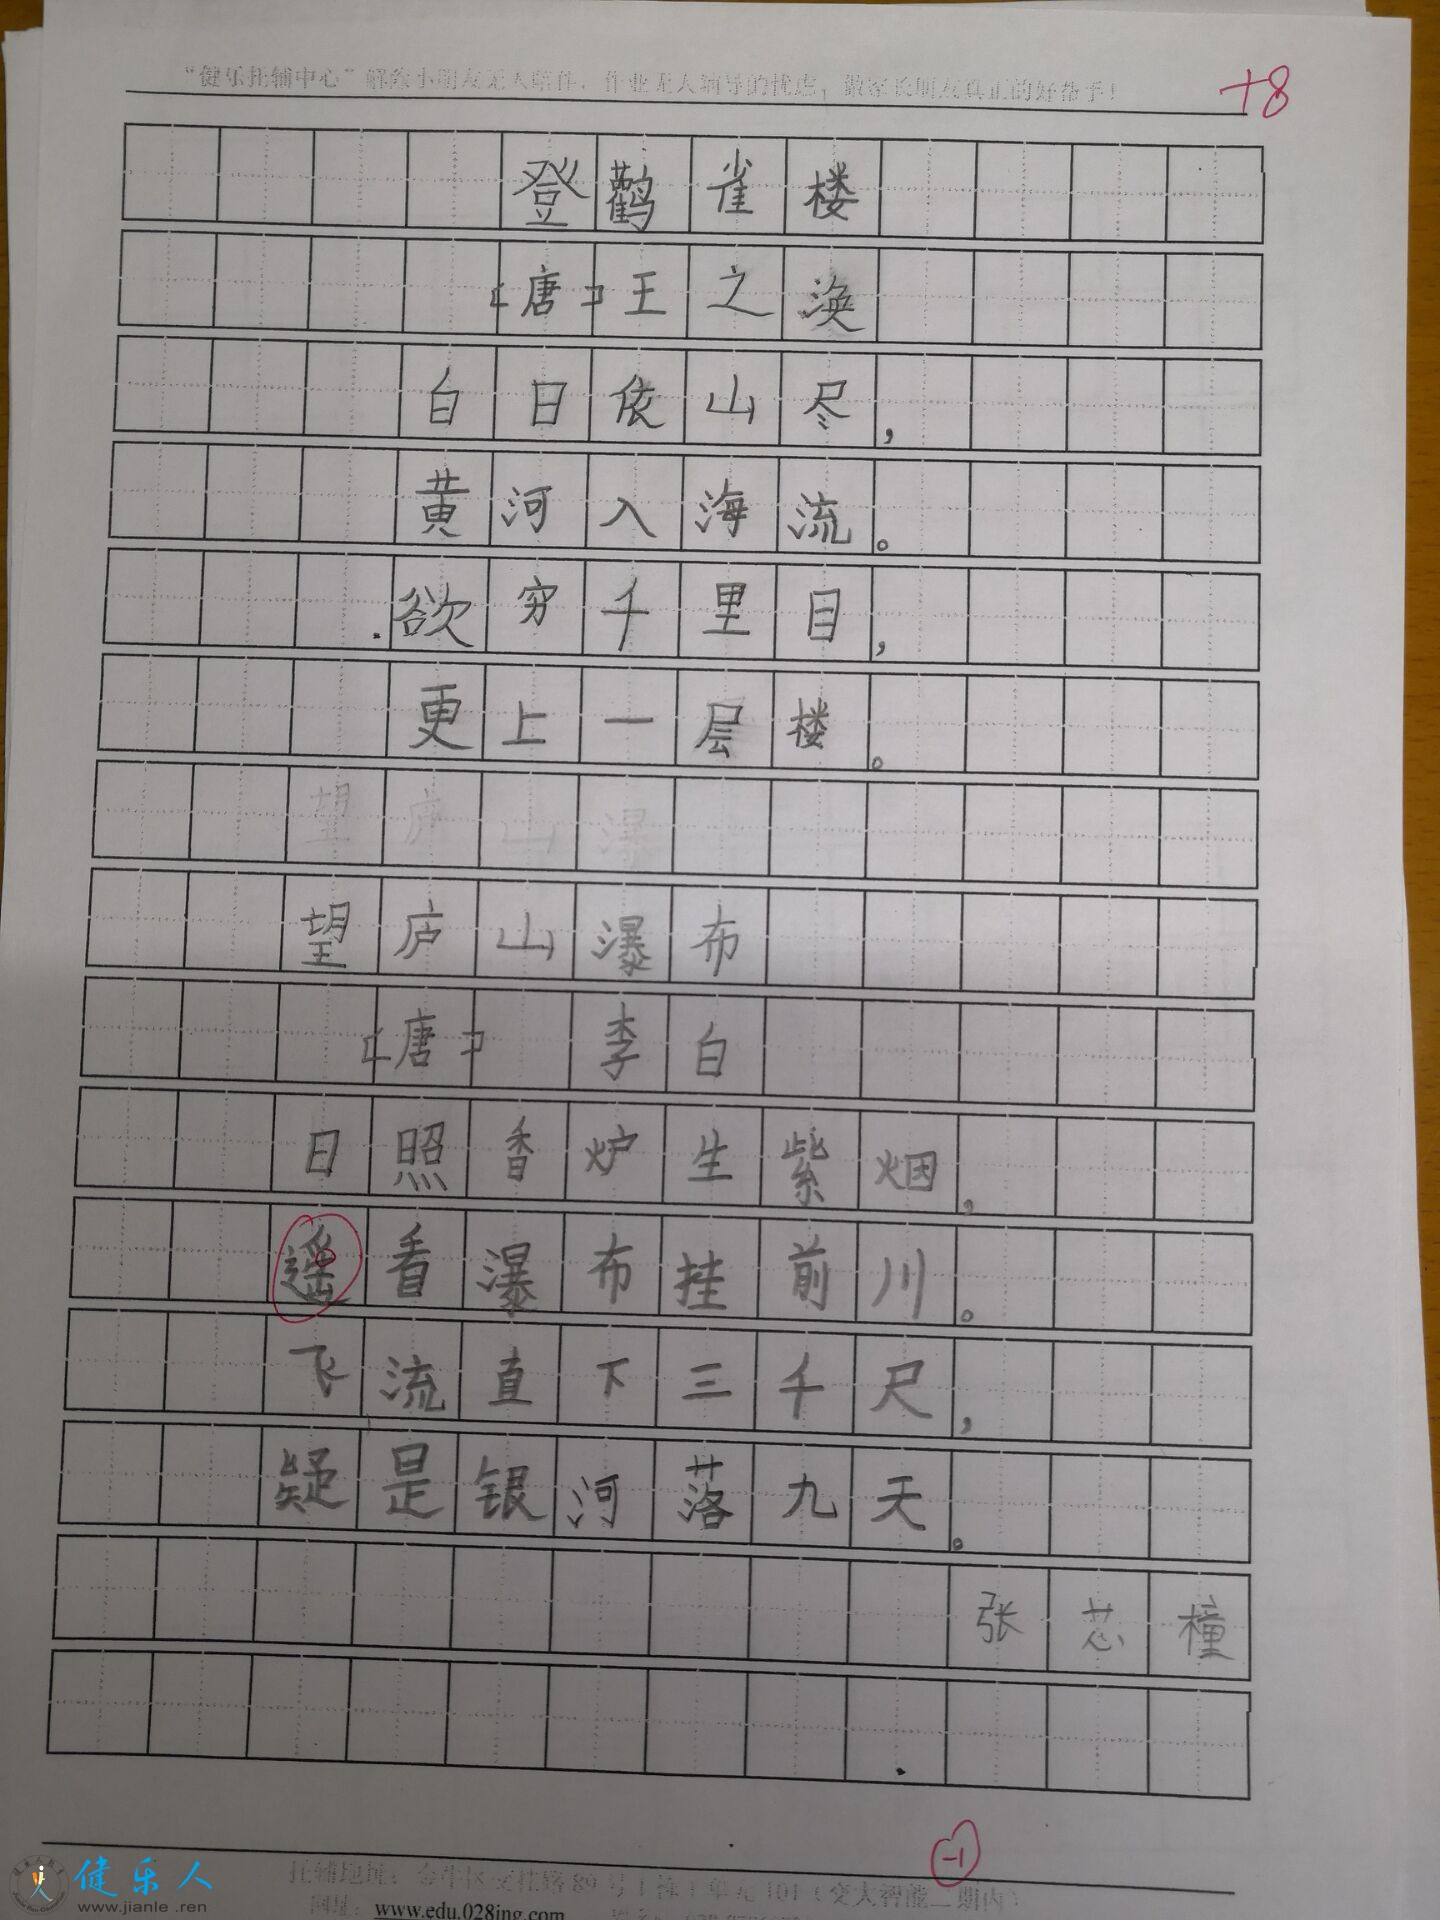 "健乐托辅中心"解您小朋友无人陪伴,作业无人辅导的忧虑,做家长朋友真正的好帮手!
+8
登鹳雀楼
[唐]王之涣
白日依山尽,
黄河入海流。
欲穷千里目,
更上一层楼。
望庐山瀑
望庐山瀑布
[唐] 李白
日照香炉生紫烟,
遥看瀑布挂前川。
飞流直下三千尺,
疑是银河落九天。
张芯橦
-1
托辅地址:金牛区交桂路89号1栋1单元101(交大智能二期内)
网址:www.edu.028jng.com
健乐人
www.jianle.ren